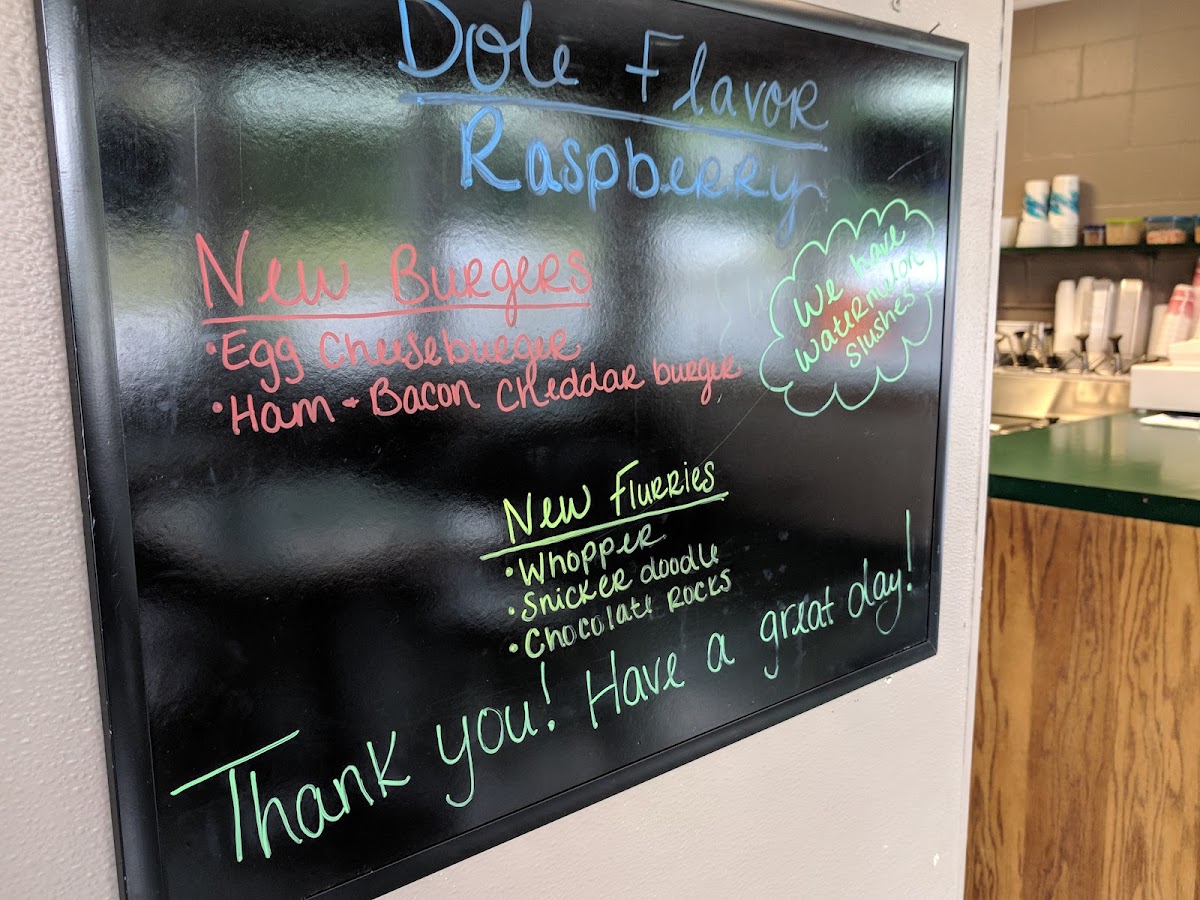 Dole Flavor
Raspberry
New Burgers
•Egg Cheeseburger
•Ham + Bacon Cheddar burger
We have
watermelon
slushes
New Flurries
•Whopper
•Snicker doodle
•Chocolate Rocks
Thank you! Have a great day!